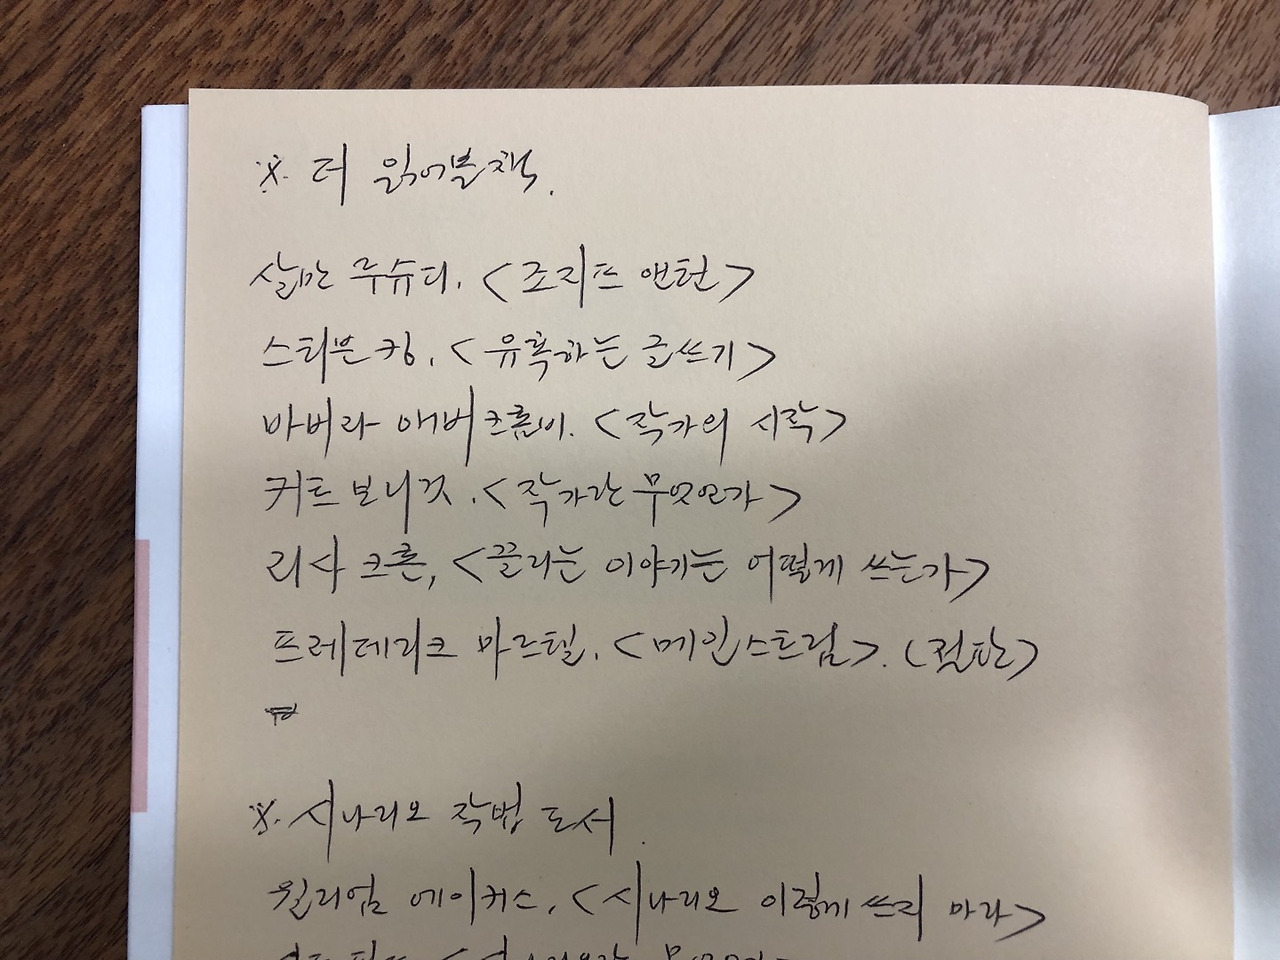 ※. 더 읽어볼 책.
살만 루슈디. <조지프 앤턴>
스티븐 킹. <유혹하는 글쓰기>
바버라 애버크롬비. <작가의 시작>
커트 보니것. <작가란 무엇인가>
리사 크론, <끌리는 이야기는 어떻게 쓰는가>
프레데리크 마르텔. <메인스트림>. (절판)
※. 시나리오 작법 도서.
윌리엄 에이커스, <시나리오 이렇게 쓰지 마라>